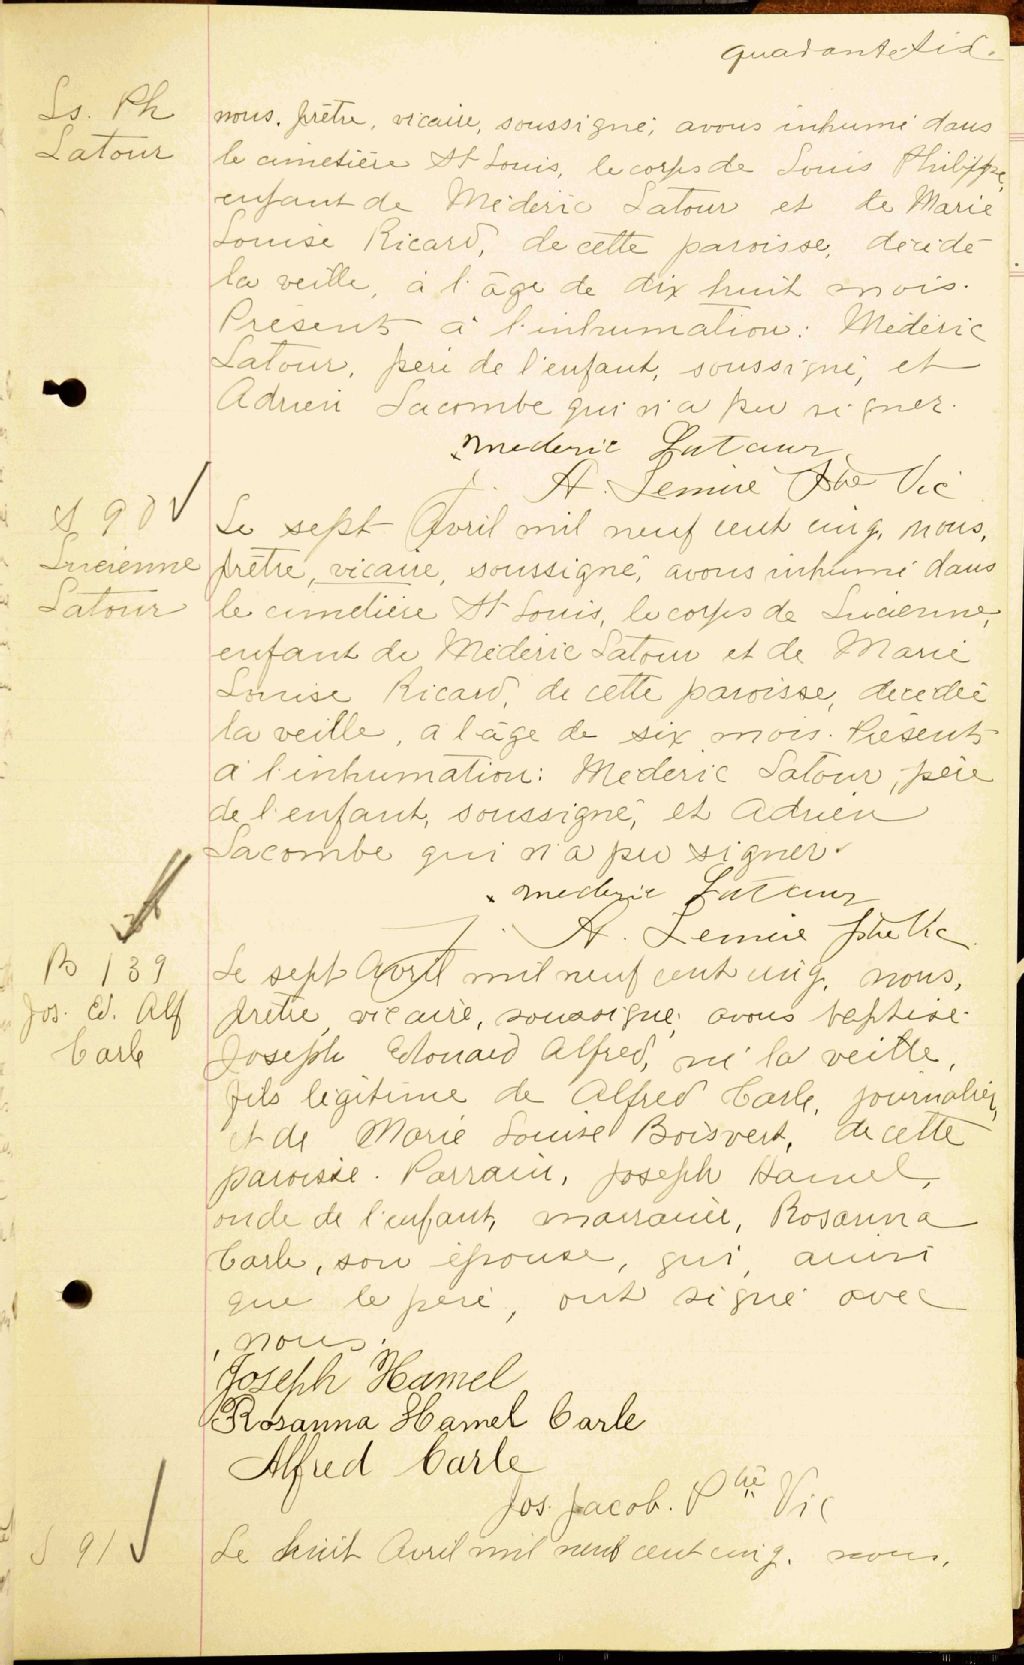 quarante-six.
Ls. Ph
Latour
nous, prêtre, vicaire, soussigné, avons inhumé dans
le cimetière St Louis, le corps de Louis Philippe,
enfant de Médéric Latour et de Marie
Louise Ricard, de cette paroisse, décédé
la veille, à l'âge de dix huit mois.
Présents à l'inhumation: Médéric
Latour, père de l'enfant, soussigné, et
Adrien Lacombe qui n'a pu signer.
mederic Lataur
A. Lemire Ptre Vic
S 90
Lucienne
Latour
Le sept Avril mil neuf cent cinq, nous,
prêtre, vicaire, soussigné, avons inhumé dans
le cimetière St Louis, le corps de Lucienne,
enfant de Médéric Latour et de Marie
Louise Ricard, de cette paroisse, décédée
la veille, a l'âge de six mois. Présents
à l'inhumation: Médéric Latour, père
de l'enfant, soussigné, et Adrien
Lacombe qui n'a pu signer.
mederic Lataur
A. Lemire ptre Vic.
B 139
Jos. Ed. Alf
Carle
Le sept Avril mil neuf cent cinq, nous,
prêtre, vicaire, soussigné, avons baptisé
Joseph Edouard Alfred, né la veille,
fils légitime de Alfred Carle, journalier,
et de Marie Louise Boisvert, de cette
paroisse. Parrain, Joseph Hamel,
oncle de l'enfant, marraine, Rosanna
Carle, son épouse, qui, ainsi
que le père, ont signé avec
nous.
Joseph Hamel
Rosanna Hamel Carle
Alfred Carle
Jos. Jacob. Ptre Vic
S 91
Le huit Avril mil neuf cent cinq, nous,